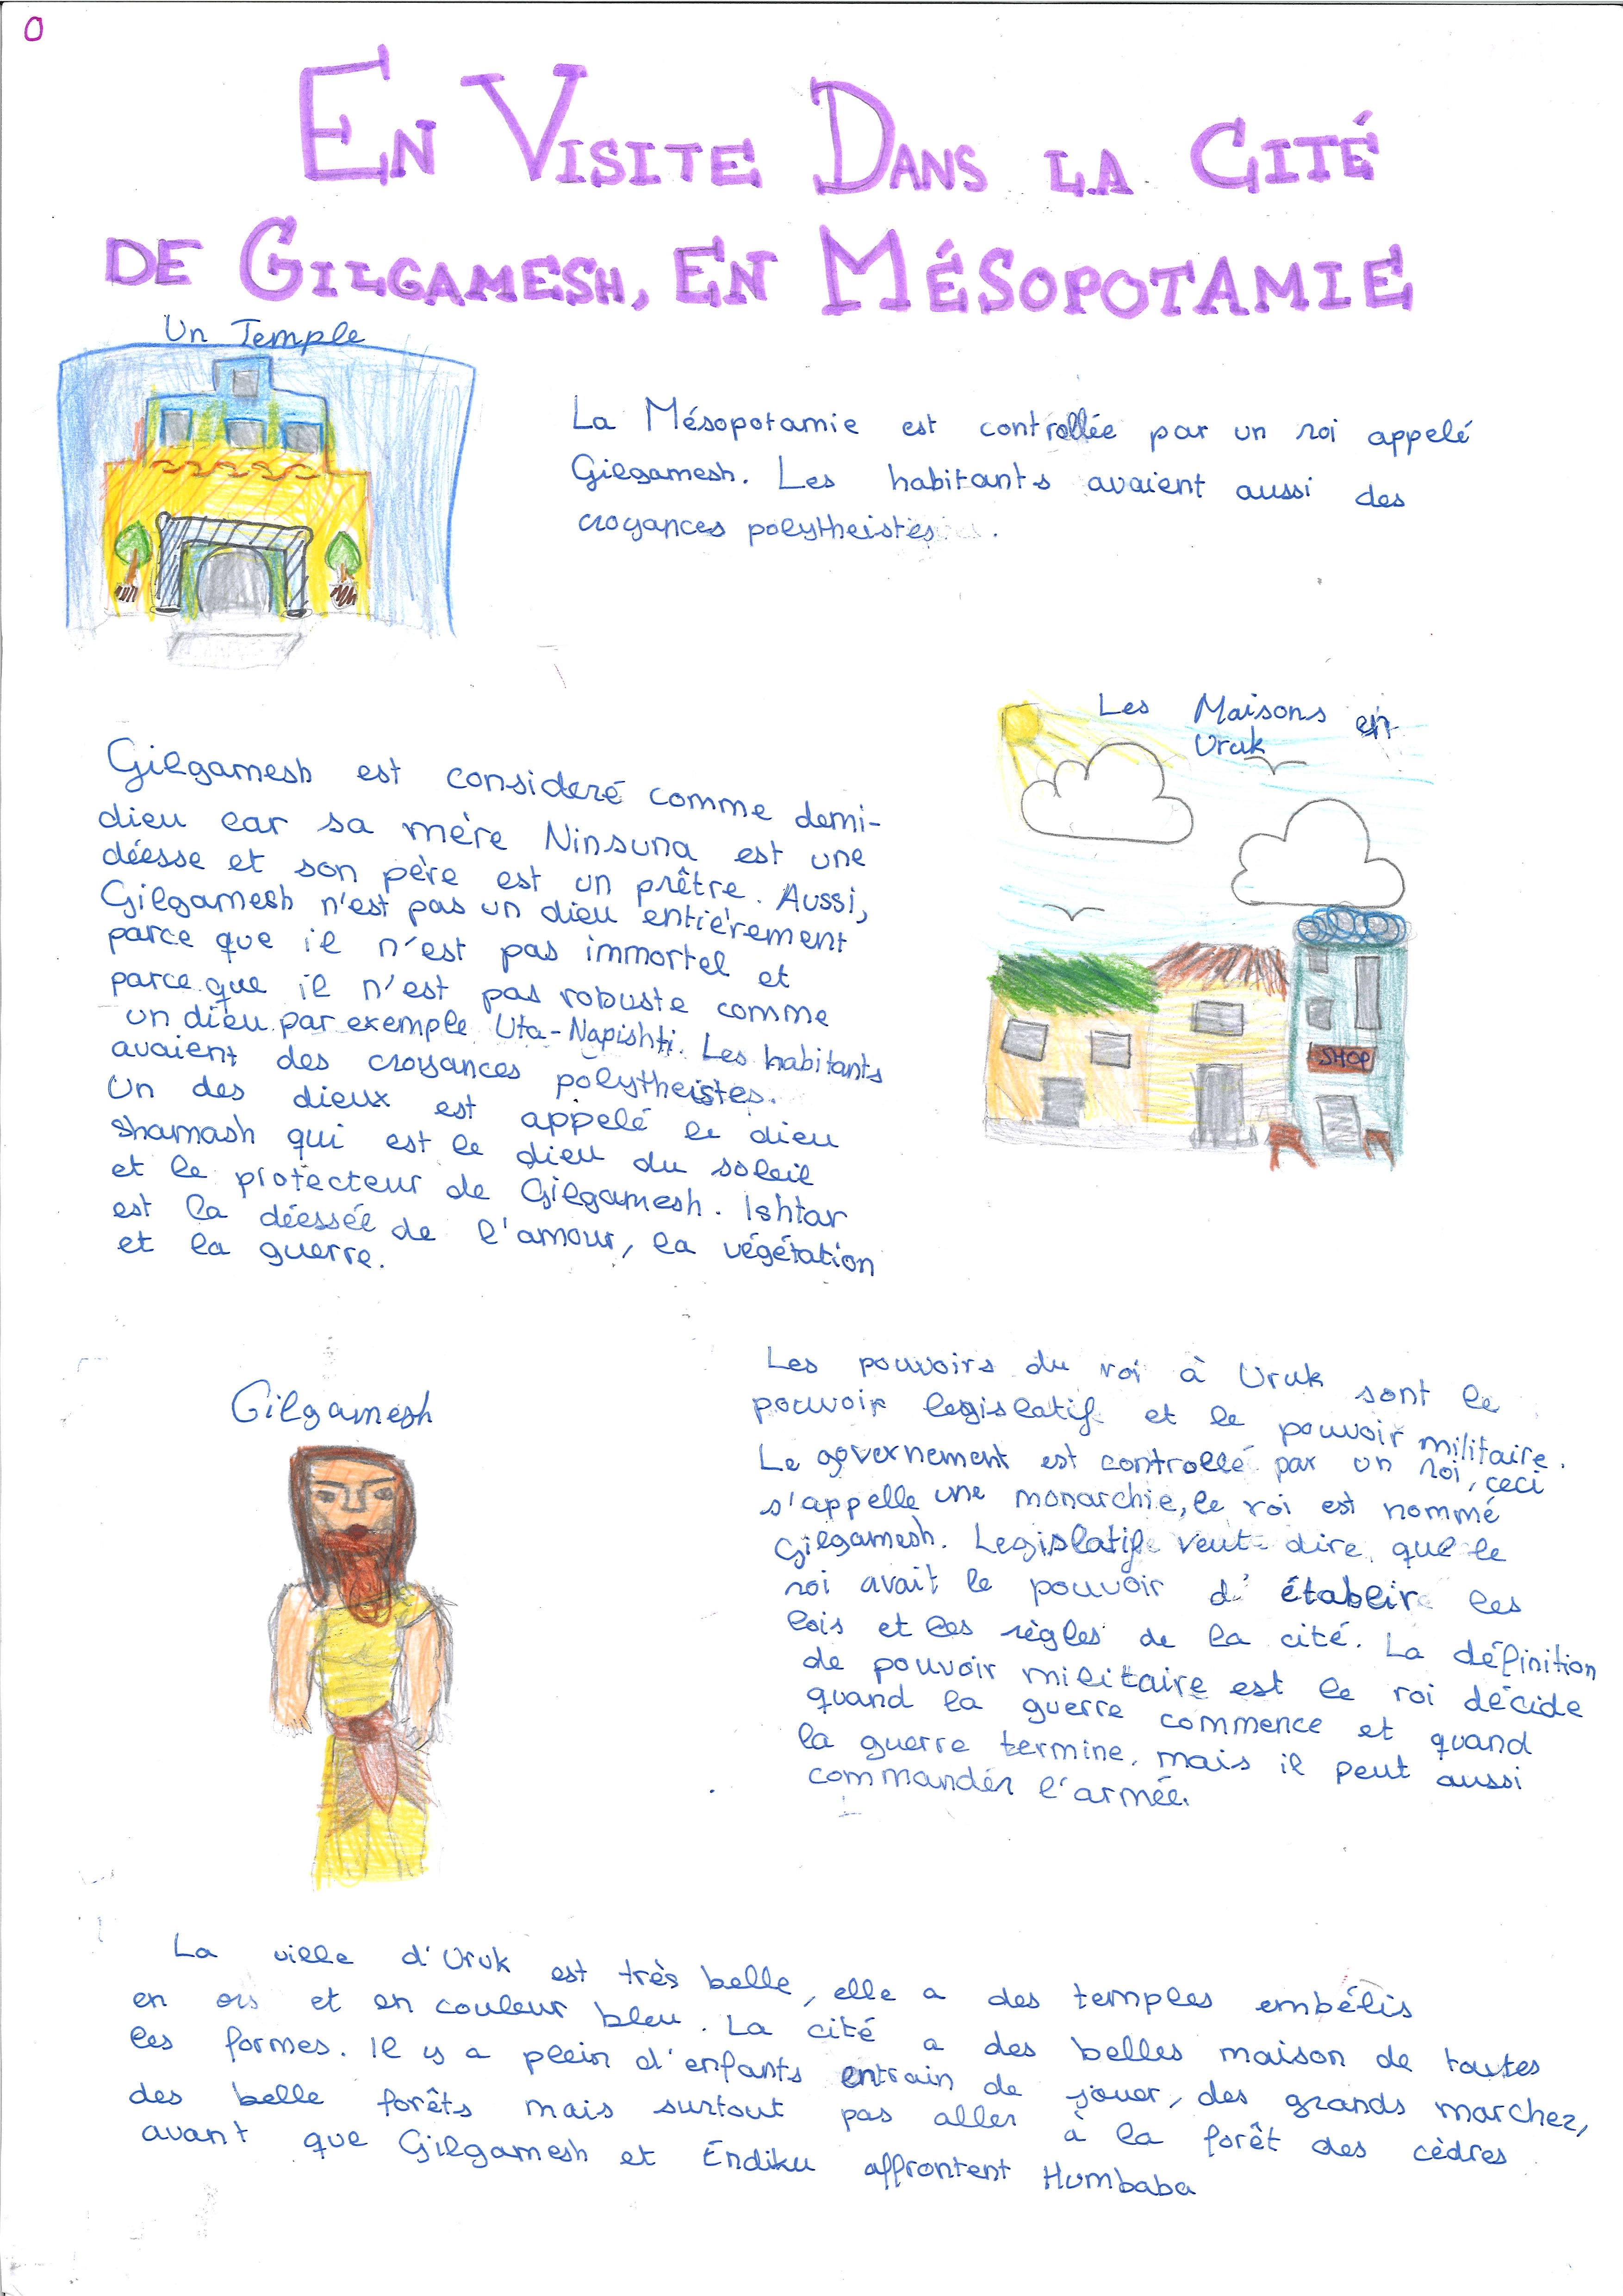 0
EN VISITE DANS LA CITÉ
DE GILGAMESH, EN MÉSOPOTAMIE
Un Temple
La Mésopotamie est contrôllée par un roi appelé
Gilgamesh. Les habitants avaient aussi des
croyances polytheistes.
Les Maisons en
Uruk
SHOP
Gilgamesh est consideré comme demi-
dieu car sa mère Ninsuna est une
déesse et son père est un prêtre. Aussi,
Gilgamesh n'est pas un dieu entièrement
parce que il n'est pas immortel et
parce que il n'est pas robuste comme
un dieu par exemple Uta-Napishti. Les habitants
avaient des croyances polytheistes.
Un des dieux est appelé le dieu
shamash qui est le dieu du soleil
et le protecteur de Gilgamesh. Ishtar
est la déessée de l'amour, la végétation
et la guerre.
Gilgamesh
Les pouvoirs du roi à Uruk sont le
pouvoir legislatif et le pouvoir militaire.
Le governement est controllé par un roi, ceci
s'appelle une monarchie, le roi est nommé
Gilgamesh. Legislatif veut dire que le
roi avait le pouvoir d'établir les
lois et les règles de la cité. La définition
de pouvoir militaire est le roi décide
quand la guerre commence et quand
la guerre termine, mais il peut aussi
commander l'armée.
La ville d'Uruk est très belle, elle a des temples embélis
en ors et en couleur bleu. La cité a des belles maison de toutes
les formes. Il y a plein d'enfants entrain de jouer, des grands marchez,
des belle forêts mais surtout pas aller à la forêt des cèdres
avant que Gilgamesh et Endiku affrontent Humbaba